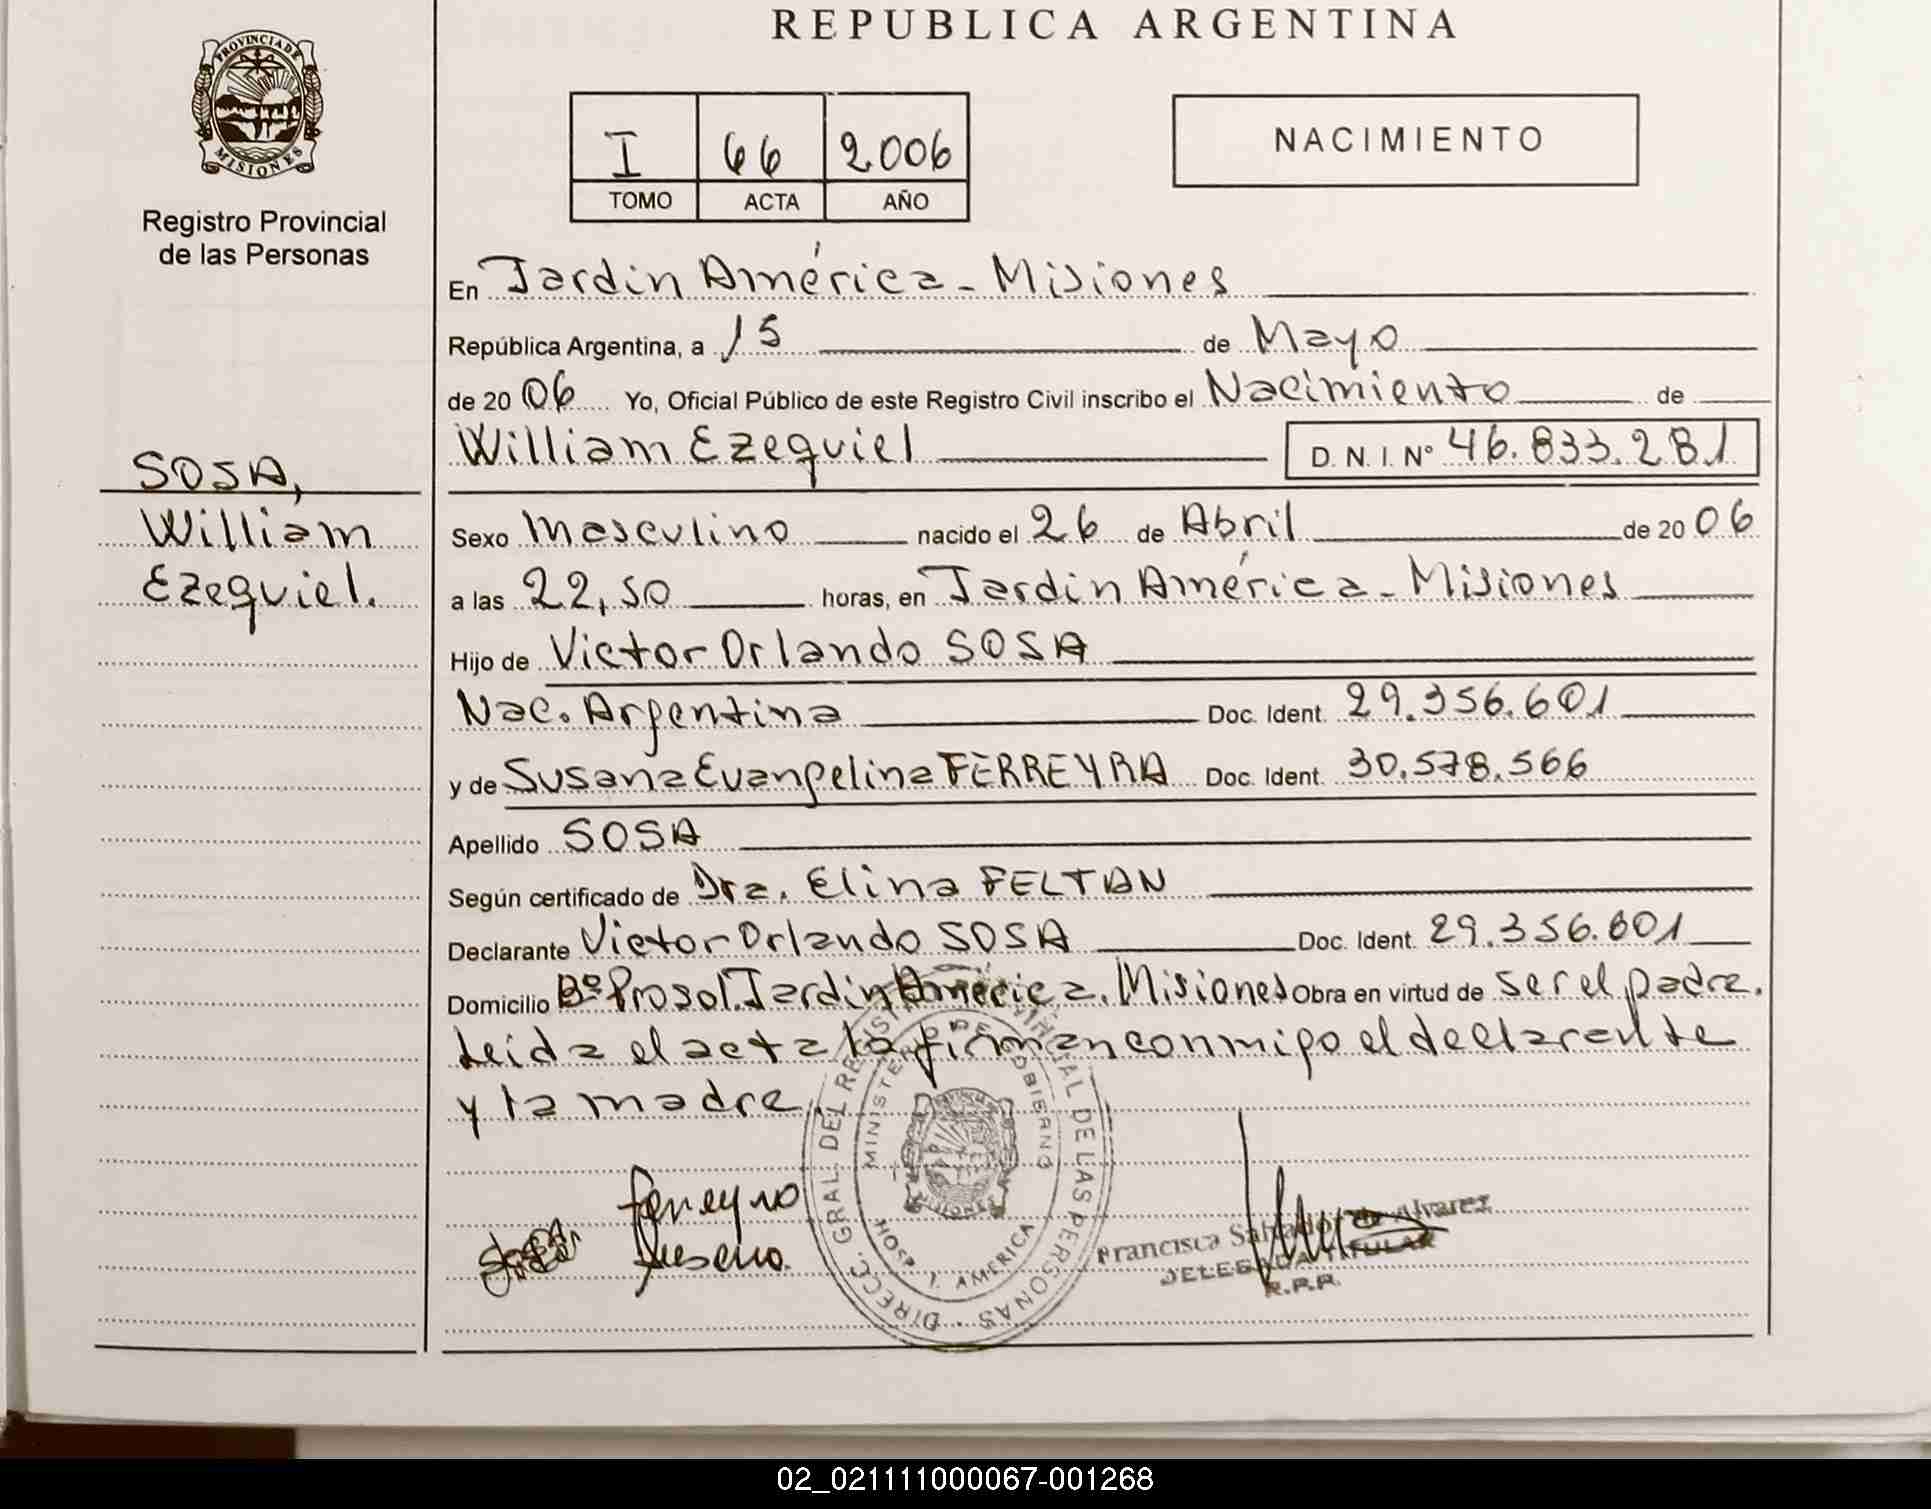 REPUBLICA ARGENTINA
PROVINCIA DE
MISIONES
Registro Provincial
de las Personas
I 66 2006
TOMO ACTA AÑO
NACIMIENTO
SOSA,
William
Ezequiel.
En Jardin América - Misiones
República Argentina, a 15 de Mayo
de 2006 Yo, Oficial Público de este Registro Civil inscribo el Nacimiento de
William Ezequiel D.N.I. Nº 46.833.281
Sexo Masculino nacido el 26 de Abril de 2006
a las 22,50 horas, en Jardin América - Misiones
Hijo de Victor Orlando SOSA
Nac. Argentina Doc. Ident. 29.356.601
y de Susana Evangelina FERREYRA Doc. Ident. 30.578.566
Apellido SOSA
Según certificado de Dra. Elina FELTAN
Declarante Victor Orlando SOSA Doc. Ident. 29.356.601
Domicilio Bº Prosol. Jardin América. Misiones Obra en virtud de ser el padre.
Leida el acta la firman conmigo el declarante
y la madre.
DIRECC. GRAL. DEL REGISTRO PROVINCIAL DE LAS PERSONAS
MINISTERIO DE GOBIERNO
HOSP. J. AMERICA
MISIONES
Sosa
Ferreyra
Susana.
Francisca Salvadora de Alvarez
DELEGADA TITULAR
R.P.P.
02_021111000067-001268